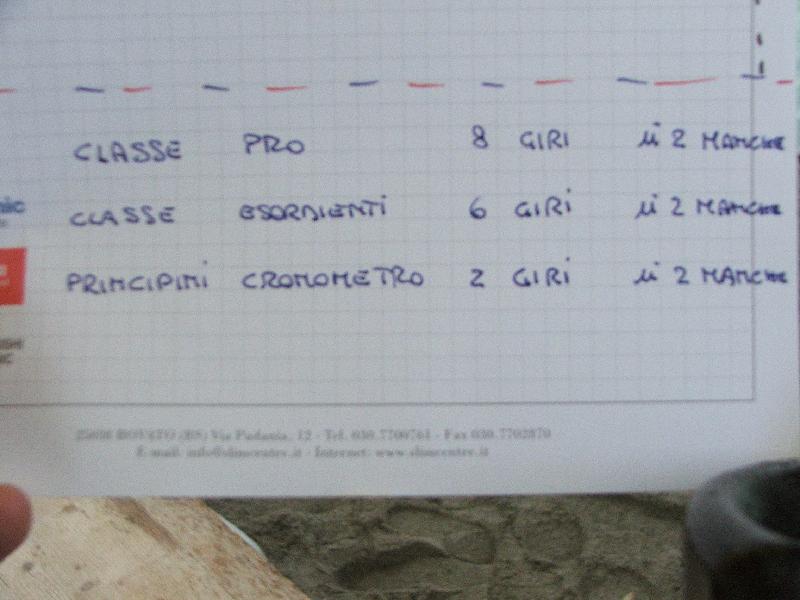 CLASSE PRO 8 GIRI in 2 MANCHE
CLASSE ESORDIENTI 6 GIRI in 2 MANCHE
PRINCIPINI CRONOMETRO 2 GIRI in 2 MANCHE
(BS) Via Padania, 12 - Tel. 030.7700761 - Fax 030.7702870
E-mail: info@slimcentre.it - Internet: www.slimcentre.it